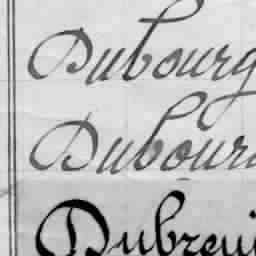 Dubourg
Dubour
Dubreui